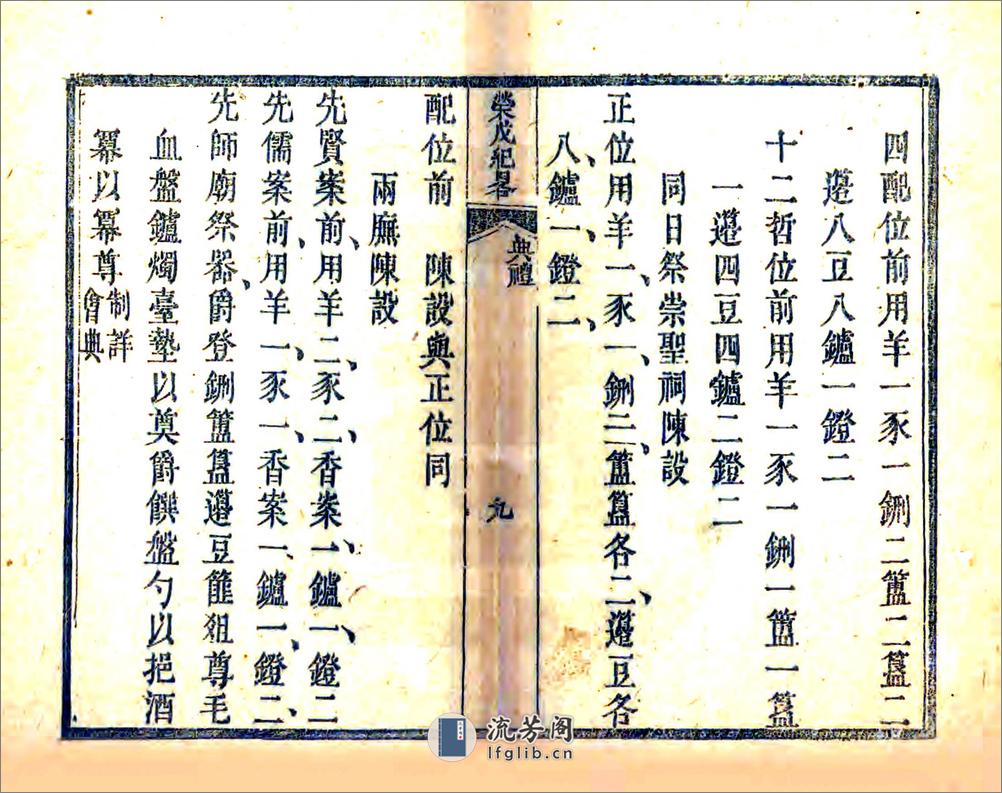 四配位前用羊一豕一鉶二簠二簋二
籩八豆八鑪一鐙二
十二哲位前用羊一豕一鉶一簠一簋
一籩四豆四鑪二鐙二
同日祭崇聖祠陳設
正位用羊一、豕一、鉶二、簠簋各二、籩豆各
八、鑪一、鐙二、
榮戊紀畧
典禮
九
配位前 陳設與正位同
兩廡陳設
先賢案前、用羊二、豕二、香案、一鑪一、鐙二
先儒案前、用羊一、豕一、香案一、鑪一、鐙二、
先師廟祭器、爵登鉶簠簋籩豆篚俎尊毛
血盤鑪燭臺墊以奠爵饌盤勺以挹酒
冪以冪尊制詳會典
流芳阁
lfglib.cn